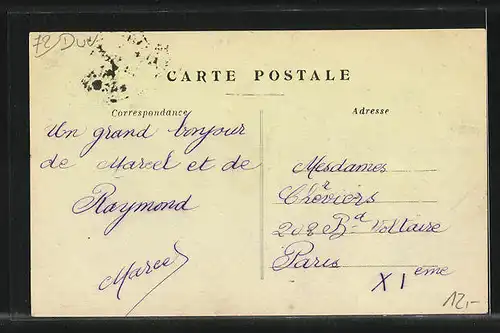 72 Duc
CARTE POSTALE
Correspondance
Adresse
Un grand bonjour
de Marcel et de
Raymond
Marcel
Mesdames
208 Bd Voltaire
Paris
XIeme
12,-